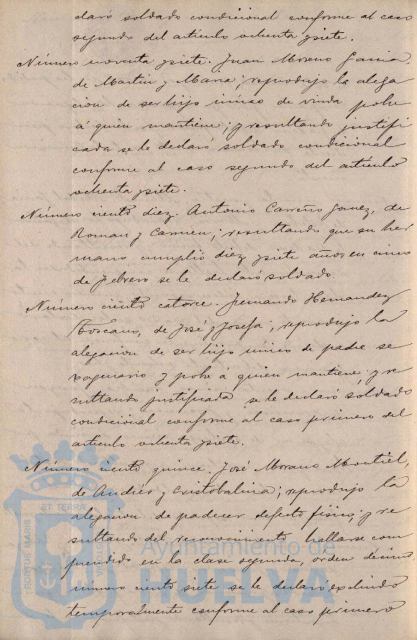 claró soldado condicional conforme al caso
segundo del artículo ochenta y siete.
Número noventa y siete. Juan Moreno Garcia
de Martin y Maria; reprodujo la alega
cion de ser hijo único de viuda pobre
á quien mantiene; y resultando justifi
cada se le declaró soldado condicional
conforme al caso segundo del artículo
ochenta y siete.
Número ciento diez. Antonio Carreño Gomez, de
Roman y Carmen; resultando que su her
mano cumplió diez y siete años en cinco
de febrero se le declaró soldado.
Número ciento catorce. Fernando Hernandez
Toscano, de José y Josefa; reprodujo la
alegacion de ser hijo único de padre se
xagenario y pobre á quien mantiene; y re
sultando justificada se le declaró soldado
condicional conforme al caso primero del
artículo ochenta y siete.
Número ciento quince. José Moreno Montiel,
de Andrés y Cristobalina; reprodujo la
alegacion de padecer defecto físico; y re
sultando del reconocimiento hallarse com
prendido en la clase segunda, orden décimo
número ciento siete se le declaró excluido
temporalmente conforme al caso primero
PORTUS MARIS
ET TERRAE
Ayuntamiento de
HUELVA